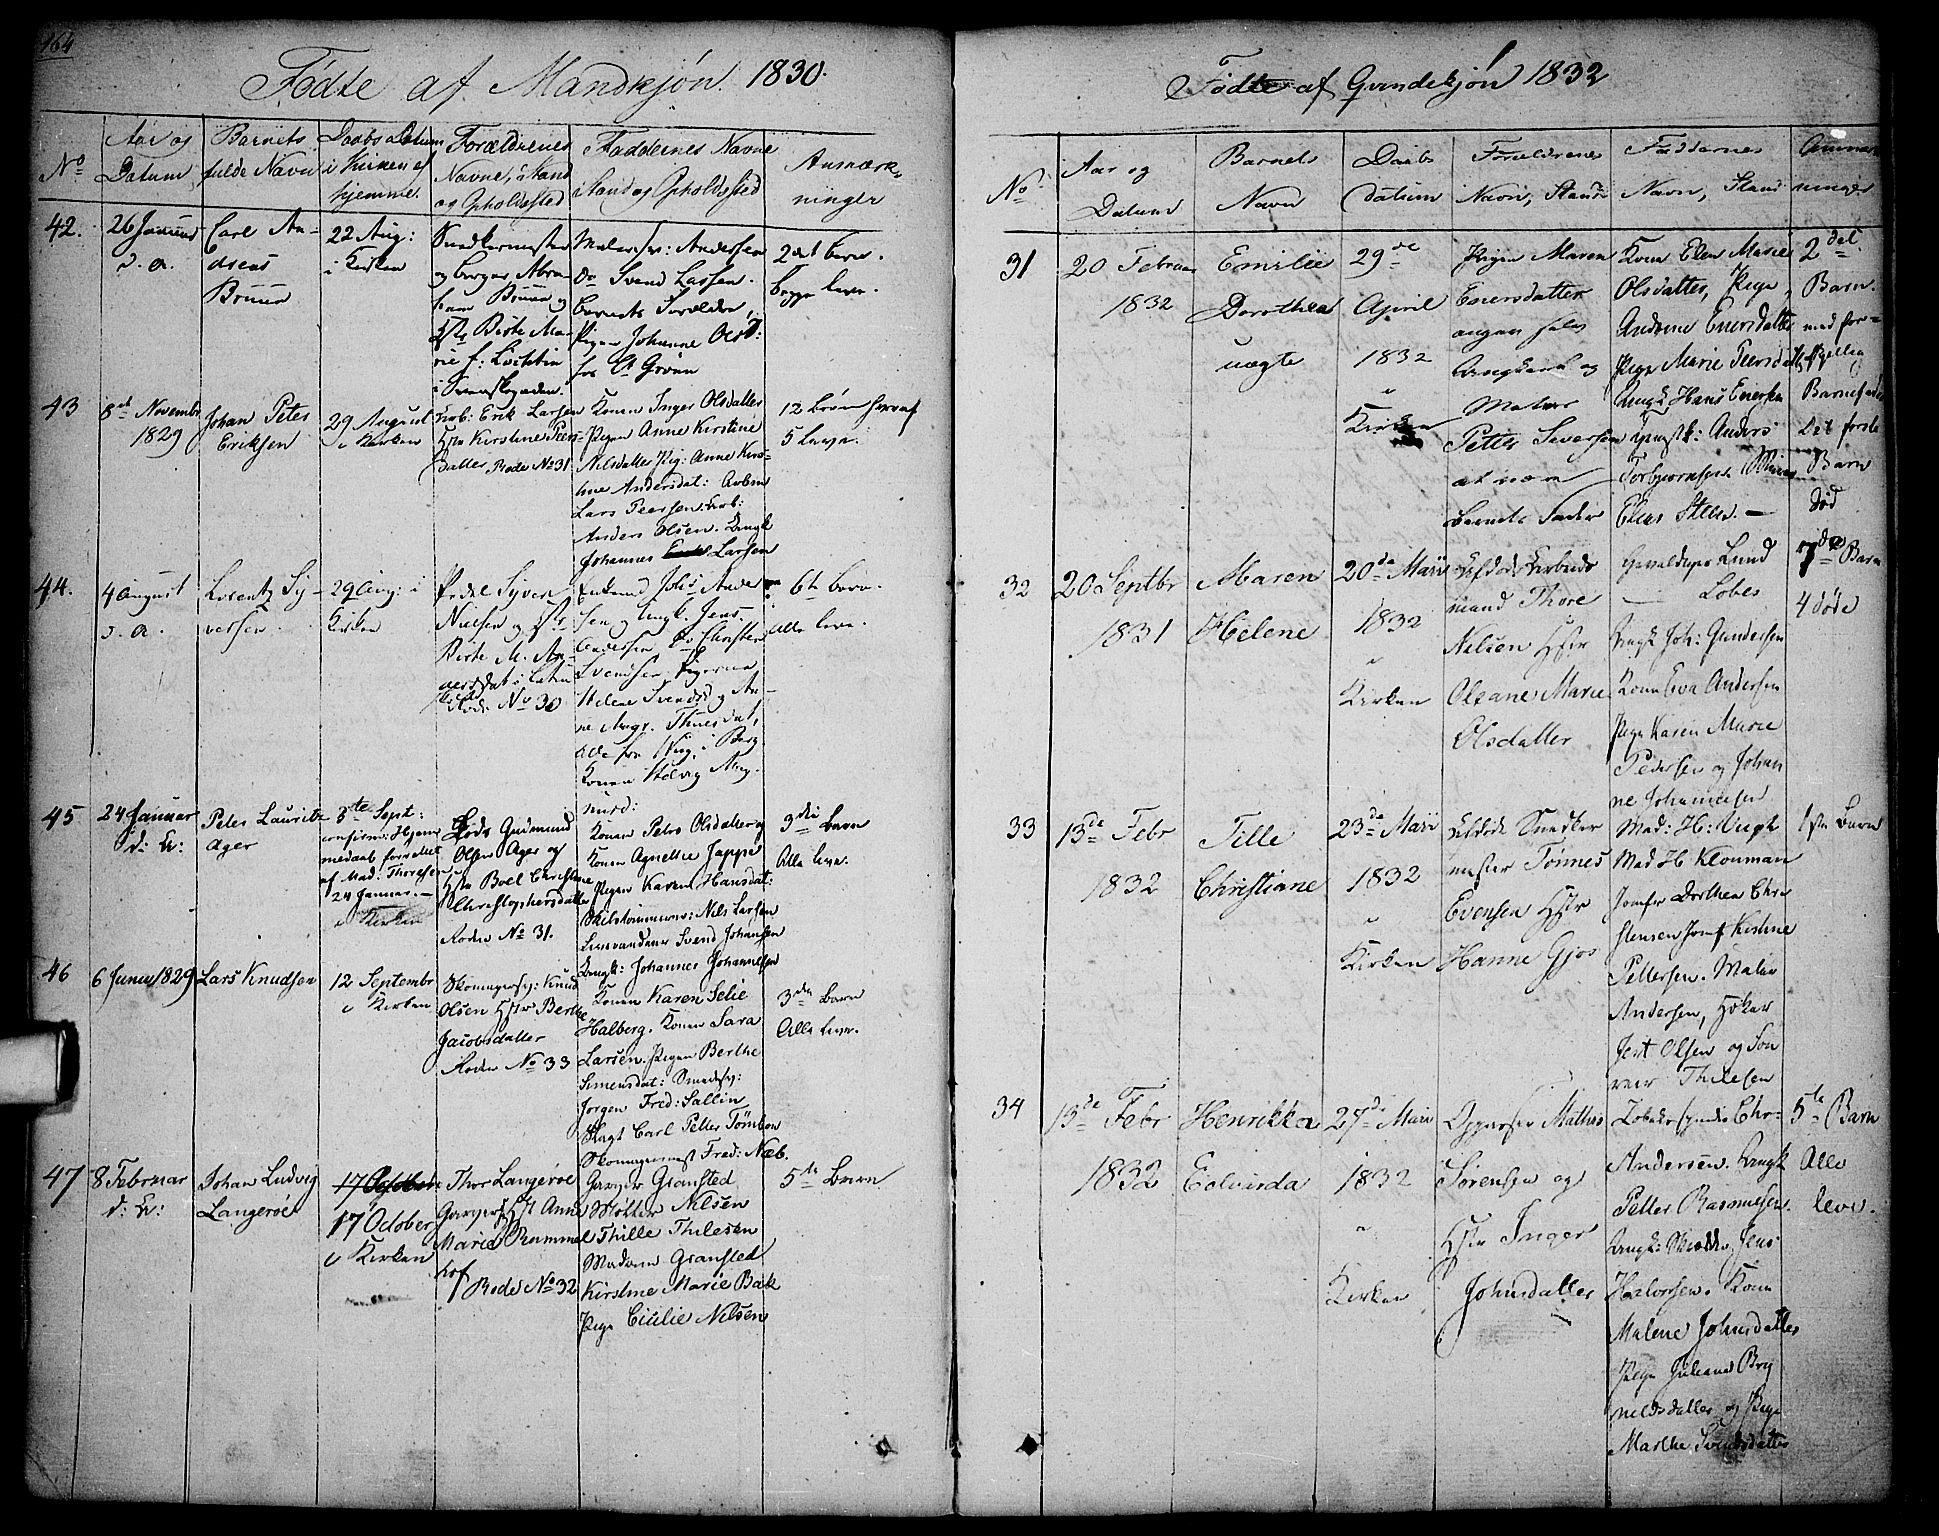 164
Fødte af Mandkjøn 1830.
No
Aar og
Datum
Barnets
fulde Navn
Daabs Datum
i Kirken ef
hjemme.
Forældrenes
Navne, Stand
og Opholdsted
Faddernes Navne
Stand og Opholdssted
Anmærk-
ninger
42.
26 Januar
d. a.
Carl An-
dreas
Bruun
22 Aug:
i Kirken
Snedkermester
og borger Abra-
ham Bruun og
Birte Ma-
rie f.
i
Malersv: Andersen
do Svend Lassen.
barnets Forældre,
Pigen Johanne Olsd:
fra Grøun
2det barn.
begge leve.
43
8d Novembr
1829
Johan Peter
Eriksen
29 August
i Kirken
Arb: Erik Larsen
Hst Kirstine Peers-
datter Rode No 31
Konen Inger Olsdatter
Pigen Anne Kirstine
Nilsdatter Pig: Anne Kirs-
tine Andersdat: Arbm
Lars Peersen. Arb:
Anders Olsen. Ungk
Johannes Larsen
12 børn hvoraf
5 leve.
44.
4 August
d. a.
Lorentz Sy-
versen.
29 Aug: i
Kirken
Pedel Syver
Nielsen og Hst
Birte M. An-
dersdat:
Rode No 30
Johs Ander-
sen, Ungk. Jens
Andersen Do Christen
Svendsen Pigerne
Helene Svendsd og An-
ne Marg. Thuesdat,
alle fra
Konen
6te barn.
Alle leve.
45
24 Januar
d: A:
Peter Lauritz
Ager
5te Sept:
confirm: Hjem
medaab forrettet
af Mad. Thoresen
24 Januar. —
i Kirken
Lods Gudmund
Olsen Ager og
Hst Boel Christine
Christophersdatter
Roden No 31.
Konen Petro Olsdatter og
Konen Agnethe Jappe
Pigen Karen Hansdat:
Skibstømmerm: Nils Larsen
Svend Johansen
Ungk: Johannes Johannesen
3die Barn
Alle leve.
46
6 Juni 1829
Lars Knudsen
12 Septembr
i Kirken
Skomagersv: Knud
Olsen Hstr Berthe
Jacobsdatter
Roden No 33
Konen Karen Selie
Halberg. Konen Sara
Larsen. Pigen Berthe
Simensdat: Smedesv:
Jørgen Fred: Sallin
Carl Petter Tømbon
Skomagermest Fred: Næb.
3die Barn
Alle leve.
47
8 Februar
d: A:
Johan Ludvig
Langerøe
17 October
17 October
i Kirken
Thor Langerøe
Garver, Hst Anne
Marie Rummel
hof
Rode No 32
Garver Gransted
Møller Nilsen
Thille Thilesen
Madame Gransted
Kirstine Marie Bak
Pige Cicilie Nilsen
5te Barn
Fødte af Qvindekjøn 1832
No
Aar og
Datum
Barnets
Navn
Daabs
datum
Forældrenes
Navn, Stand
Faddernes
Navn, Stand
Anmærk
ninger
31
20 Februar
1832
Emilie
Dorothea
uægte
29de
April
1832
"
Kirken
Pigen Maren
Enersdatter
angav selv
Ungkarl og
Matros
Petter Seversen
at være
Barnets Fader
Konen Elen Marie
Olsdatter, Pige
Andrine Enersdatter
Pige Marie Peersdat
Ungk. Hans Enersen
Ungk: Anders
Torbjørnsen.
Elias Steen. —
2det
Barn
med for-
skjellig
Barnefader
Det første
Barn
død
32
20 Septbr
1831
Maren
Helene
20de Maii
1832
"
Kirken
Afdøde Arbeids
mand Thore
Nilsen Hstr
Oleane Marie
Olsdatter
Gevaldiger Lund
Lobes
Ungk Joh: Gundersen
Kone Eva Andersen
Pige Karen Marie
Pedersen og Johan
ne Johannesen
7de Barn
4 døde
33
13de Febr
1832
Tille
Christiane
23de Maii
1832
"
Kirken
Afdøde Snedker
mester Tønnes
Evensen Hstr
Hanne Gjos
Mad: H: Vugh
Mad H Klouman
Jomfr Dorthea Chri
stensen Jomf Kirstine
Pettersen. Maler
Andersen, Høker
Jert Olsen og Gar
ver Thilesen
1ste Barn
34
13de Febr
1832
Henrikka
Eolvinda
27de Maii
1832
"
Kirken
Opparser Mathias
Sørensen og
Hstr Inger
Johnsdatter
Tobaksspinder Chr.
Andersen. Ungk
Petter Rasmussen.
Ungk: Jens
Halvorsen. Kone
Malene Johnsdatter
Pige Juliane Bry
nildsdatter og Pige
Marthe Svendsdatter
5te Barn
Alle
leve.